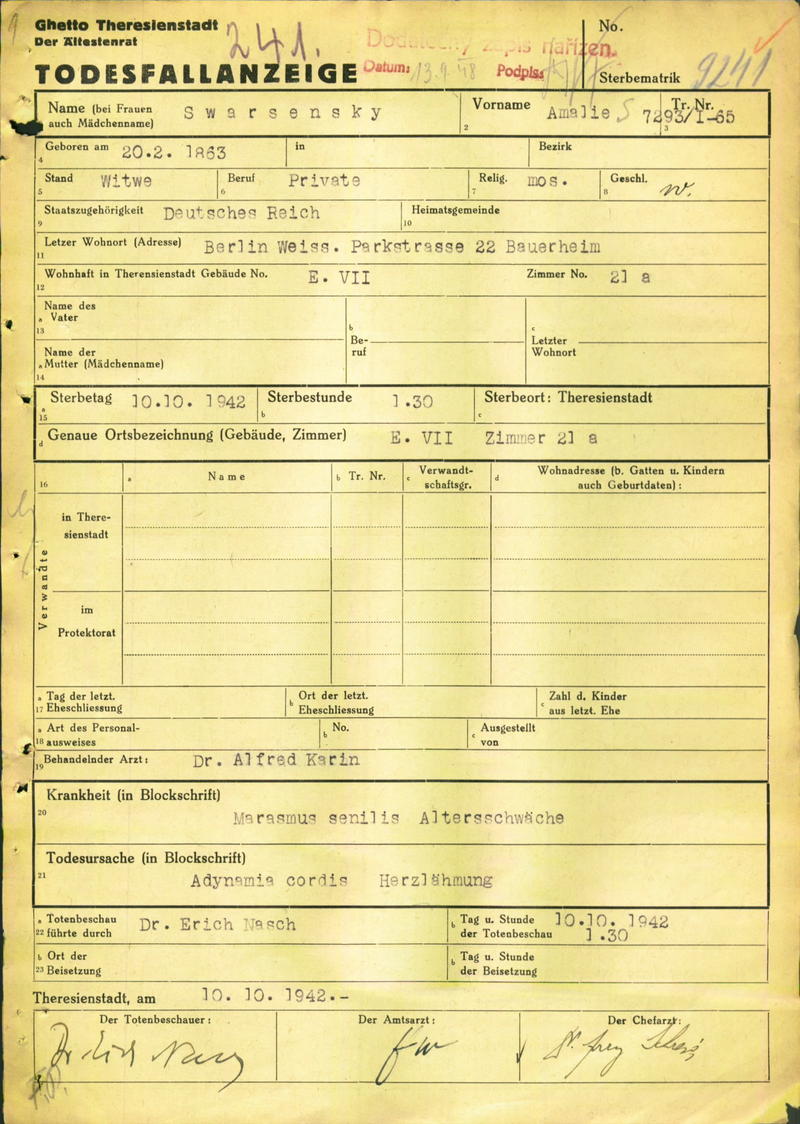 Ghetto Theresienstadt
Der Ältestenrat
241.
Datum: 13.9.48 Podpis:
No.
TODESFALLANZEIGE
Sterbematrik 9241
Name (bei Frauen auch Mädchenname) Swarsensky
Vorname Amalie S
2
Tr. Nr. 7293/I-65
3
Geboren am 20.2. 1863
4
in
Bezirk
Stand Witwe
5
Beruf Private
6
Relig. mos.
7
Geschl. w.
8
Staatszugehörigkeit Deutsches Reich
9
Heimatsgemeinde
10
Letzer Wohnort (Adresse) Berlin Weiss. Parkstrasse 22 Bauerheim
11
Wohnhaft in Therensienstadt Gebäude No. E. VII
12
Zimmer No. 21 a
Name des
a Vater
13
Name der
a Mutter (Mädchenname)
14
b
Be-
ruf
c
Letzter
Wohnort
Sterbetag 10.10. 1942
a
15
Sterbestunde 1.30
b
Sterbeort: Theresienstadt
c
d Genaue Ortsbezeichnung (Gebäude, Zimmer) E. VII Zimmer 21 a
16
a Name
b Tr. Nr.
c Verwandt-
schaftsgr.
d Wohnadresse (b. Gatten u. Kindern
auch Geburtdaten) :
Verwandte
in There-
sienstadt
im
Protektorat
a Tag der letzt.
17 Eheschliessung
b Ort der letzt.
Eheschliessung
c Zahl d. Kinder
aus letzt. Ehe
a Art des Personal-
18 ausweises
b No.
c Ausgestellt
von
Behandelnder Arzt: Dr. Alfred Karin
19
Krankheit (in Blockschrift)
20
Marasmus senilis Altersschwäche
Todesursache (in Blockschrift)
21
Adynamia cordis Herzlähmung
a Totenbeschau
22 führte durch Dr. Erich Nasch
b Tag u. Stunde 10.10. 1942
der Totenbeschau 1.30
b Ort der
23 Beisetzung
b Tag u. Stunde
der Beisetzung
Theresienstadt, am 10. 10. 1942.-
Der Totenbeschauer:
Der Amtsarzt:
Der Chefarzt: